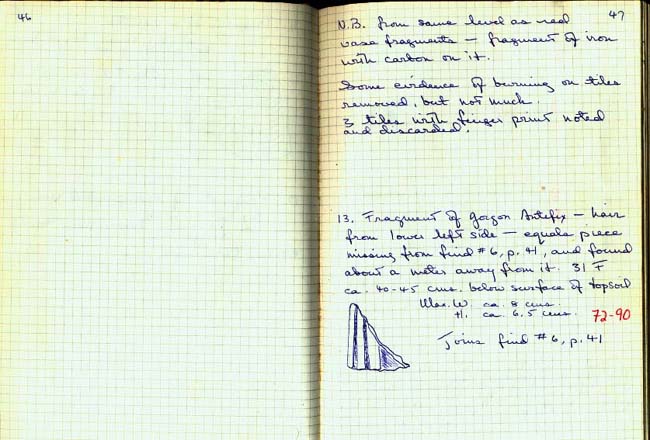 46
47
N.B. from same level as red
vase fragments — fragment of iron
with carbon on it.
Some evidence of burning on tiles
removed, but not much.
3 tiles with finger print noted
and discarded.
13. Fragment of gorgon Antefix — hair
from lower left side — equals piece
missing from find #6, p. 41, and found
about a meter away from it. 31 F
ca. 40-45 cms. below surface of topsoil
Max. W. ca. 8 cms.
H. ca. 6.5 cms. 72-90
Joins find #6, p. 41